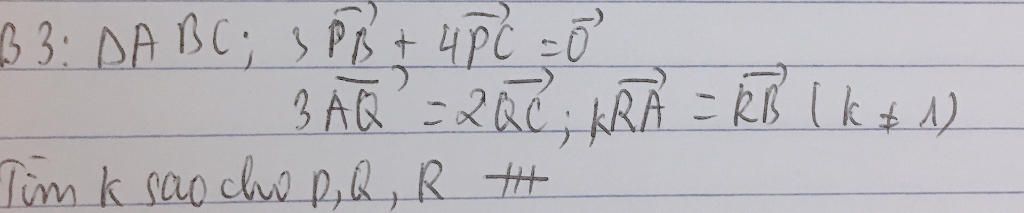 B3: ΔABC; 3\overrightarrow{PB} + 4\overrightarrow{PC} = \vec{0}
3\overrightarrow{AQ} = 2\overrightarrow{QC}; k\overrightarrow{RA} = \overrightarrow{RB} (k ≠ 1)
Tìm k sao cho P, Q, R